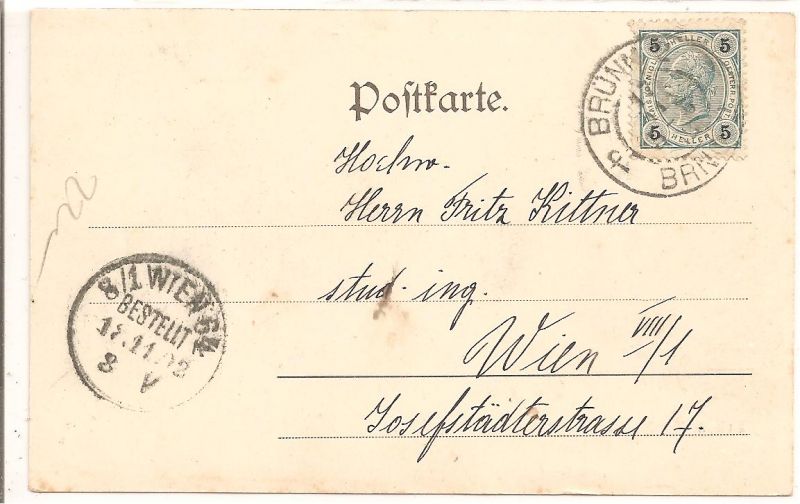 Postkarte.
5 HELLER 5
5 HELLER 5
BRÜNN
BRN
Hochw.
Herrn Fritz Kittner
stud. ing.
Wien VIII/1
Josefstädterstrasse 17.
8/1 WIEN 64
BESTELLT
17.11.02
8 V